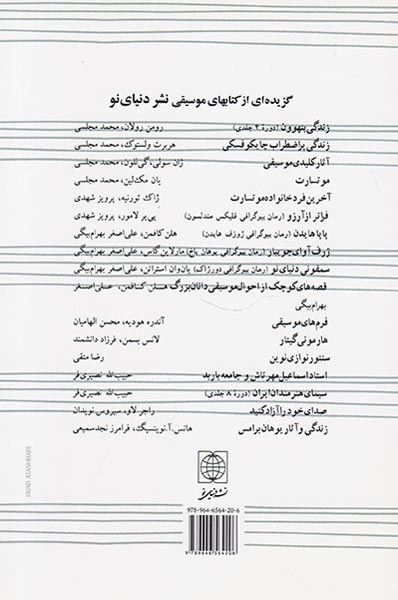 گزیده‌ای از کتابهای موسیقی نشر دنیای نو
زندگی بتهوون (دورهٔ ۲ جلدی) رومن رولان، محمد مجلسی
زندگی پراضطراب چایکوفسکی هربرت ولستوک، محمد مجلسی
آثار کلیدی موسیقی ژان سولی، گی‌للون، محمد مجلسی
موتسارت یان مک‌لین، محمد مجلسی
آخرین فرد خانواده موتسارت ژاک تورنیه، پرویز شهدی
فراتر از آرزو (رمان بیوگرافی فلیکس مندلسون) پی‌یر لامور، پرویز شهدی
پاپا هایدن (رمان بیوگرافی ژوزف هایدن) هلن کافمن، علی‌اصغر بهرام‌بیگی
ژرف آوای جویبار (رمان بیوگرافی یوهان باخ) مارلاین‌گاس، علی‌اصغر بهرام‌بیگی
سمفونی دنیای نو (رمان بیوگرافی دورژاک) یان‌وان استراتن، علی‌اصغر بهرام‌بیگی
قصه‌های کوچک از احوال موسیقی‌دانان بزرگ هلن کافمن، علی‌اصغر
بهرام‌بیگی
فرم‌های موسیقی آندره هودیه، محسن الهامیان
هارمونی گیتار لانس بسمن، فرزاد دانشمند
سنتورنوازی نوین رضا متقی
استاد اسماعیل مهرتاش و جامعه باربد حبیب‌الله نصیری‌فر
سیمای هنرمندان ایران (دورهٔ ۸ جلدی) حبیب‌الله نصیری‌فر
صدای خود را آزاد کنید راجر لاو، سیروس نویدان
زندگی و آثار یوهان برامس هانس.آ.نوینسیگ، فرامرز نجدسمیعی
نشر دنیای نو
978-964-6564-20-6
9789646564206